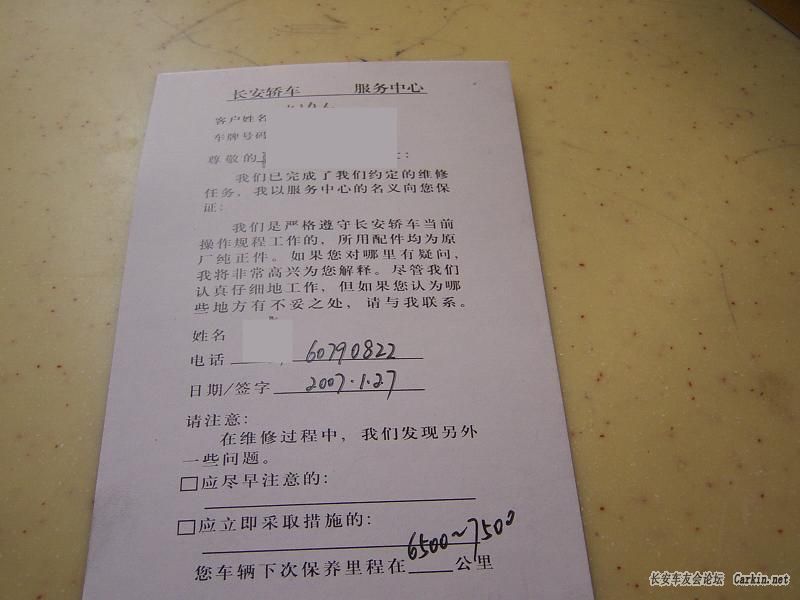 长安轿车 服务中心
客户姓名
车牌号码
尊敬的
我们已完成了我们约定的维修
任务，我以服务中心的名义向您保
证：
我们是严格遵守长安轿车当前
操作规程工作的，所用配件均为原
厂纯正件。如果您对哪里有疑问，
我将非常高兴为您解释。尽管我们
认真仔细地工作，但如果您认为哪
些地方有不妥之处，请与我联系。
姓名
电话 60790822
日期/签字 2007.1.27
请注意：
在维修过程中，我们发现另外
一些问题。
□应尽早注意的：
□应立即采取措施的：
6500~7500
您车辆下次保养里程在____公里
长安车友会论坛 Carkin.net